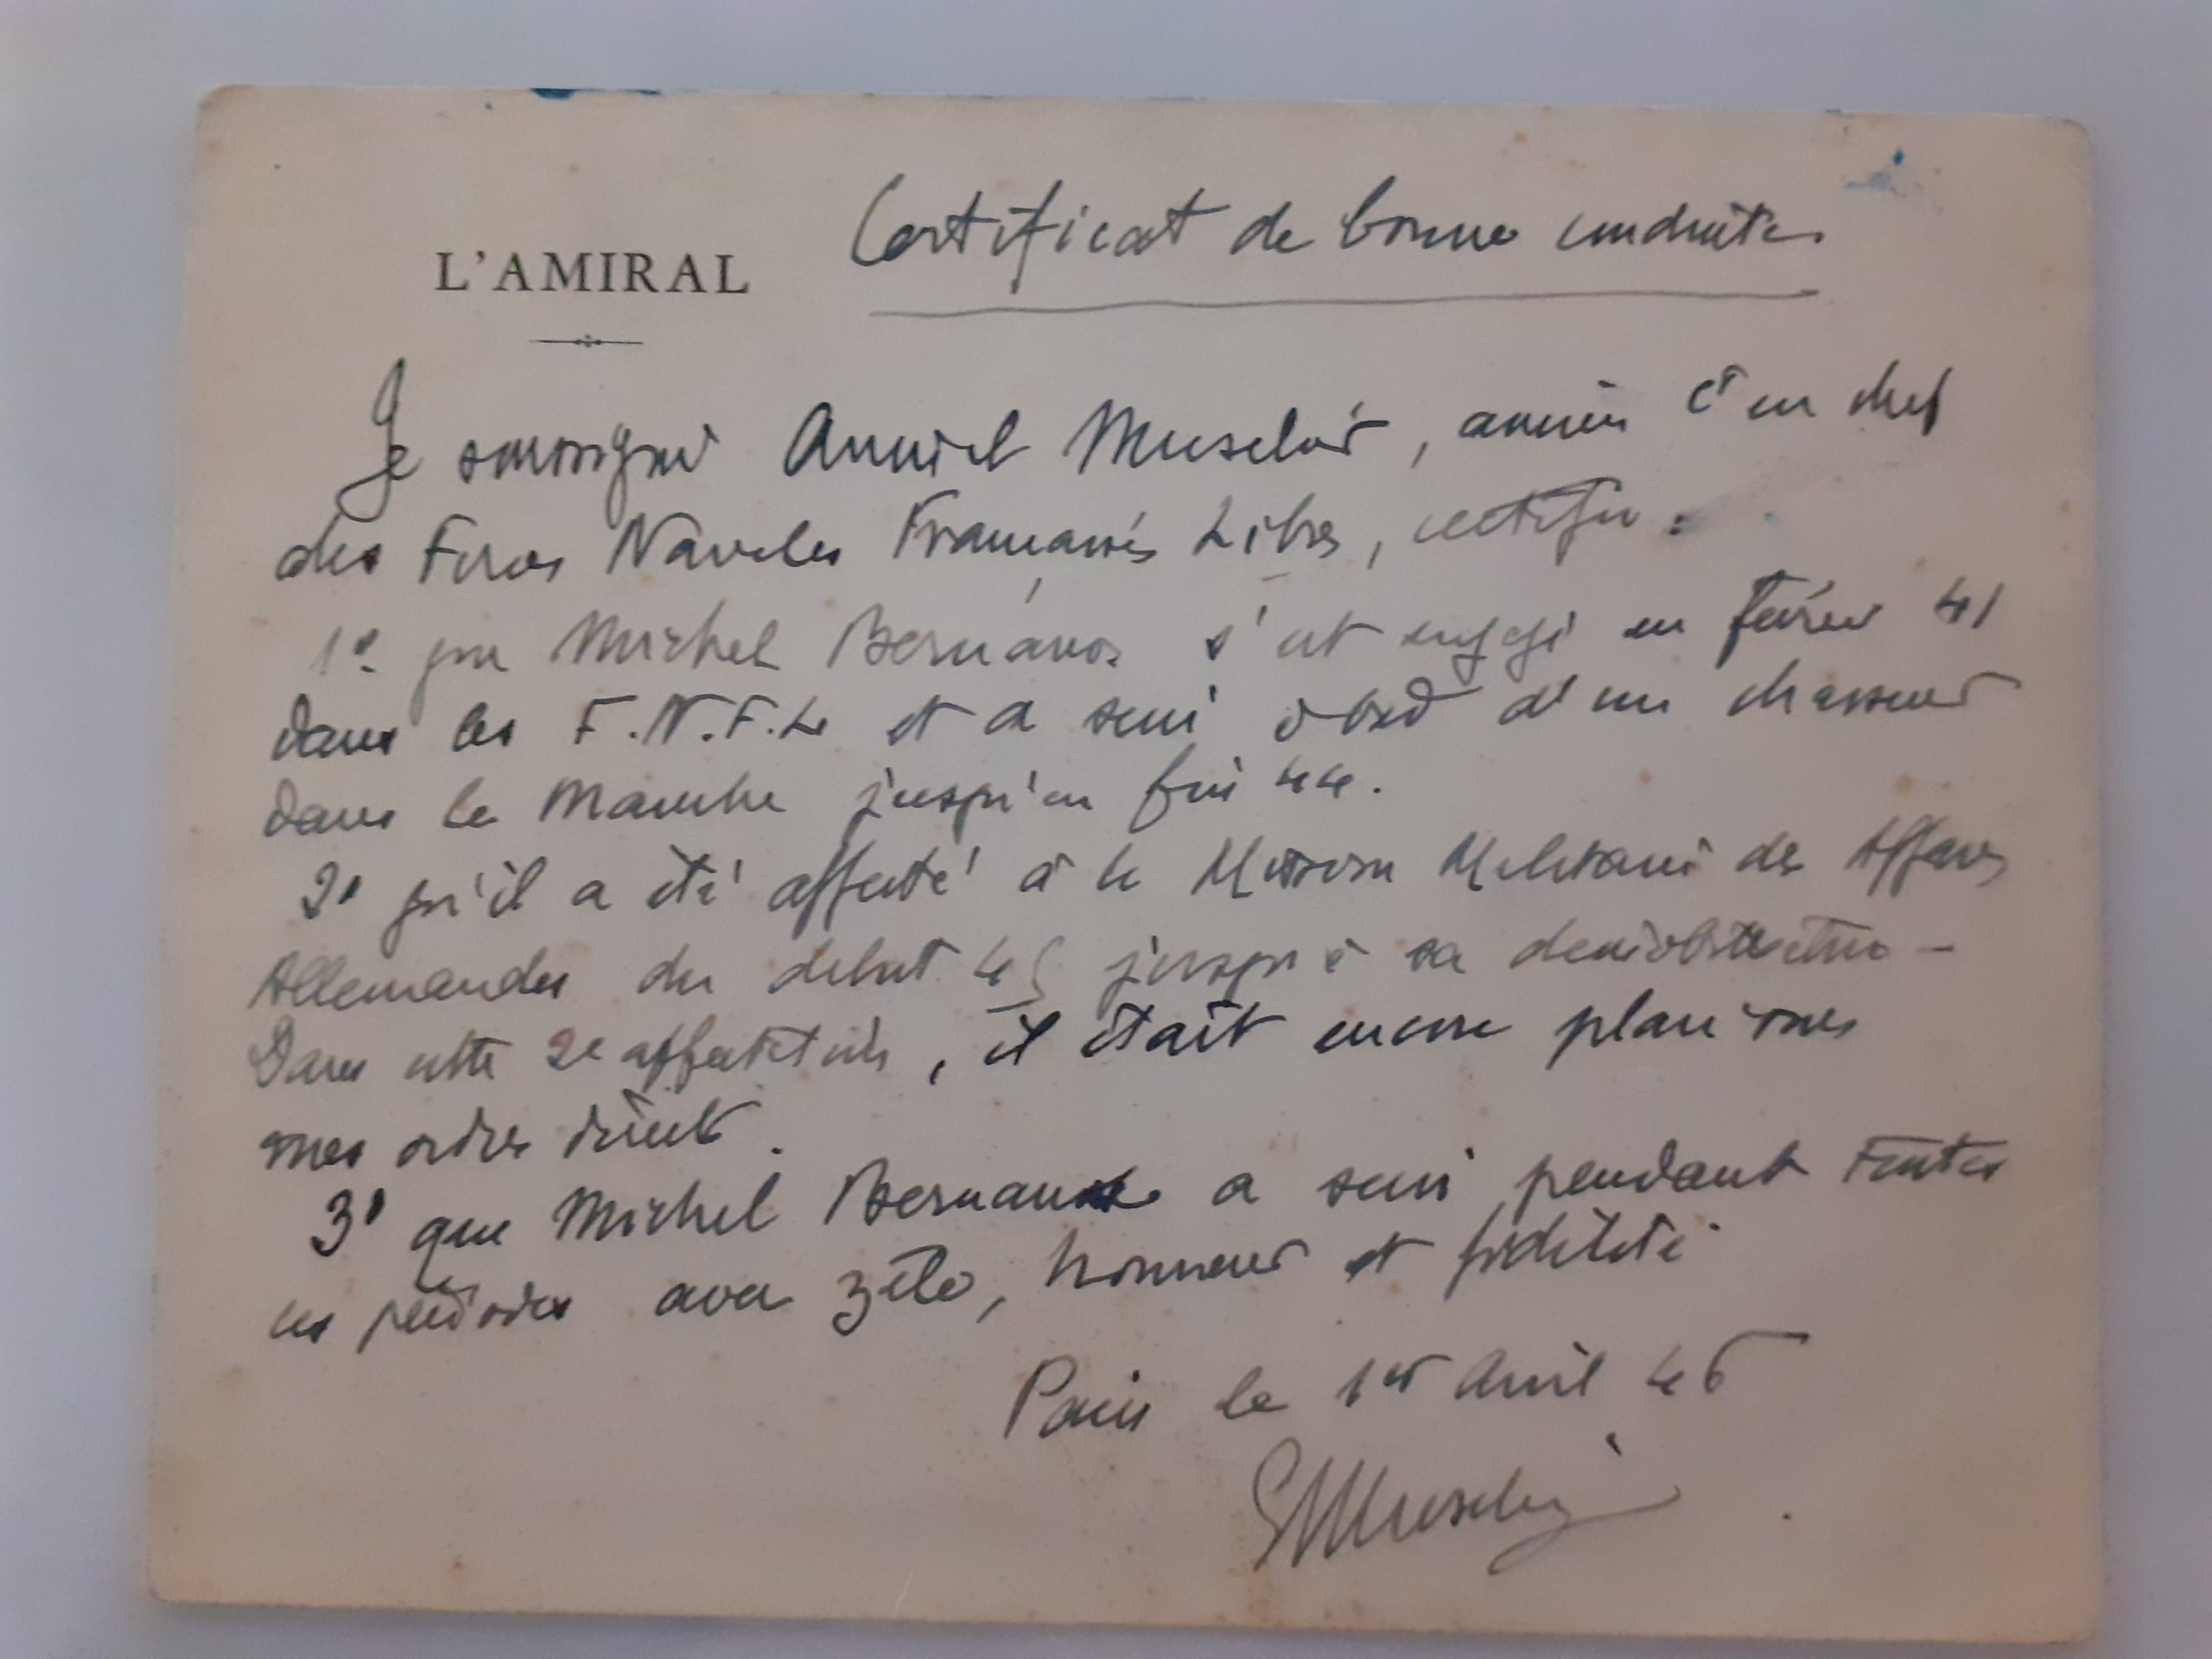 Certificat de bonne conduite
L'AMIRAL
Je soussigné Amiral Muselier, ancien Ct en chef
des Forces Navales Françaises Libres, certifie :
1º que Michel Bernanos s'est engagé en février 41
dans les F.N.F.L et a servi à bord d'un chasseur
dans la Manche jusqu'en fin 44.
2º qu'il a été affecté à la Mission Militaire des Affaires
Allemandes du début 45 jusqu'à sa démobilisation -
Dans cette 2e affectation, il était encore placé sous
mes ordres directs.
3º que Michel Bernanos a servi pendant toutes
ces périodes avec zèle, honneur et fidélité
Paris le 1er Avril 46
EMuselier